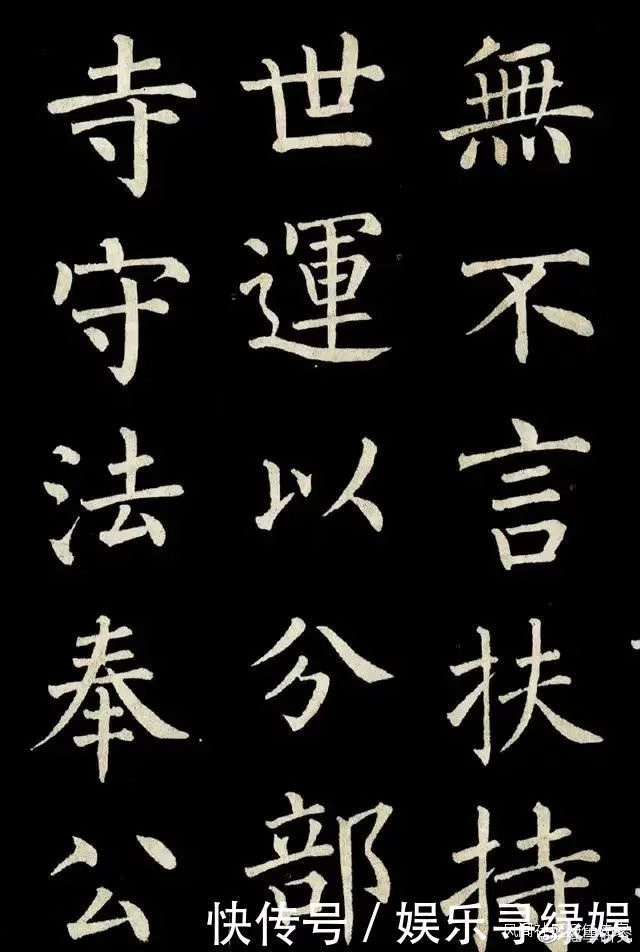 無不言扶持
世運以分部
寺守法奉公
快传号/娱乐寻绿娱